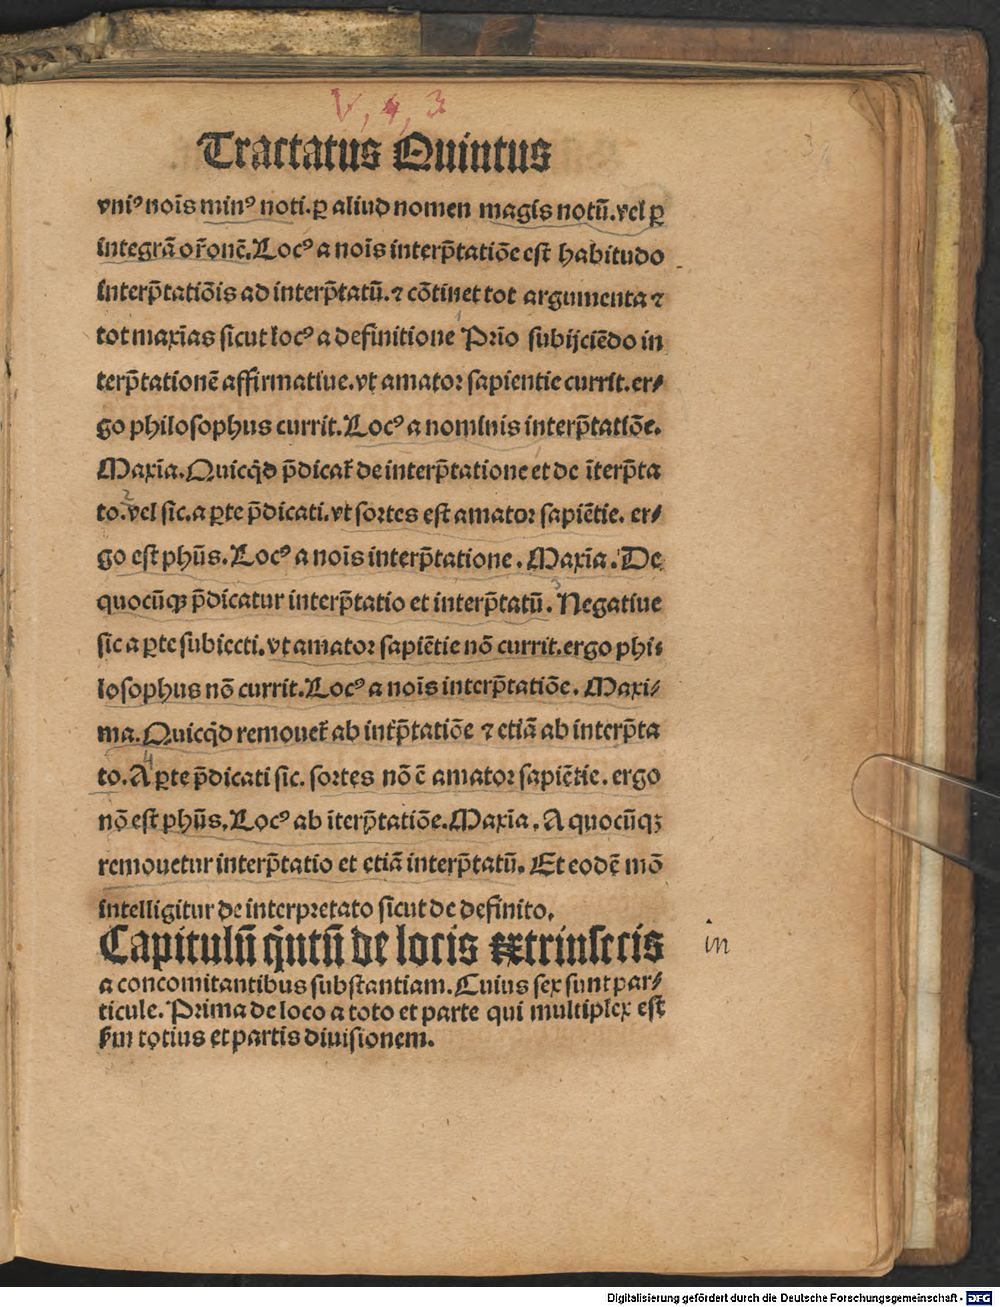 V, 4, 3
Tractatus Quintus
vniꝰ noīs minꝰ noti. ꝑ aliud nomen magis notū. vel ꝑ
integrā or̄onē. Locꝰ a noīs interp̄tatiōe est habitudo
interp̄tatiōis ad interp̄tatū. ⁊ cōtinet tot argumenta ⁊
tot maxīas sicut locꝰ a definitione Prīo subijciēdo in
terp̄tationē affirmatiue. vt amator sapientie currit. er⸗
go philosophus currit. Locꝰ a nominis interp̄tatiōe.
Maxīa. Quicq̄d p̄dicat̄ de interp̄tatione et de īterp̄ta
2
to. vel sic. a ꝑte p̄dicati. vt sortes est amator sapiētie. er⸗
go est phūs. Locꝰ a noīs interp̄tatione. Maxīa. De
3
quocūqꝫ p̄dicatur interp̄tatio et interp̄tatū. Negatiue
sic a ꝑte subiecti. vt amator sapiētie nō currit. ergo phi⸗
losophus nō currit. Locꝰ a noīs interp̄tatiōe. Maxi⸗
ma. Quicq̄d remouet̄ ab int̄p̄tatiōe ⁊ etiā ab interp̄ta
4
to. A ꝑte p̄dicati sic. sortes nō ē amator sapiētie. ergo
nō est phūs. Locꝰ ab īterp̄tatiōe. Maxīa. A quocūqꝫ
remouetur interp̄tatio et etiā interp̄tatū. Et eodē mō
intelligitur de interpretato sicut de definito.
Capitulū q̄ntū de locis extrinsecis
in
a concomitantibus substantiam. Cuius sex sunt par⸗
ticule. Prima de loco a toto et parte qui multiplex est
s̄m totius et partis diuisionem.
Digitalisierung gefördert durch die Deutsche Forschungsgemeinschaft - DFG